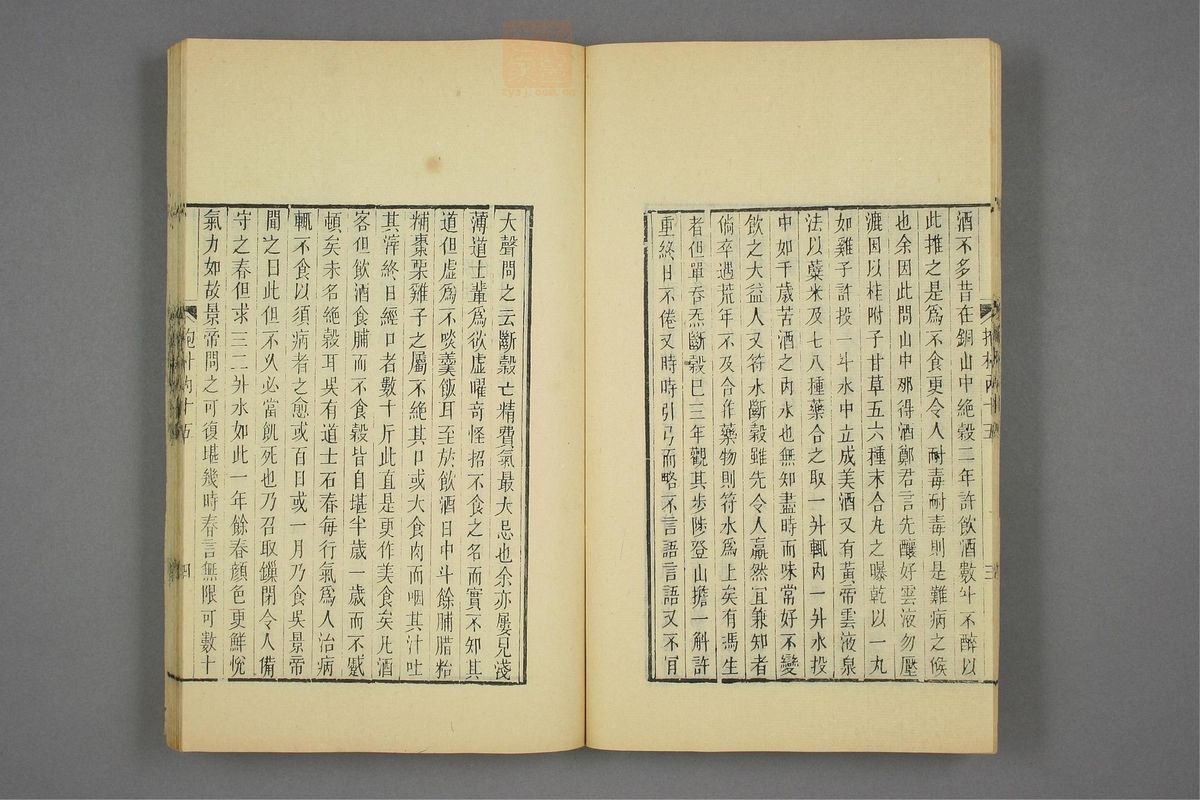 酒不多昔在銅山中絶穀二年許飲酒數斗不醉以
此推之是爲不食更令人耐毒耐毒則是難病之候
也余因此問山中那得酒鄭君言先釀好雲液勿壓
漉因以桂附子甘草五六種末合丸之曝乾以一丸
如雞子許投一斗水中立成美酒又有黃帝雲液泉
法以蘗米及七八種藥合之取一升輒内一升水投
中如千歲苦酒之内水也無知盡時而味常好不變
飲之大益人又符水斷穀雖先令人羸然宜兼知者
倘卒遇荒年不及合作藥物則符水爲上矣有馮生
者但單吞炁斷穀已三年觀其步陟登山擔一斛許
重終日不倦又時時引弓而略不言語言語又不肎
大聲問之云斷穀亡精費氣最大忌也余亦屢見淺
薄道士輩爲欲虚曜奇怪招不食之名而實不知其
道但虚爲不啖羹飯耳至於飲酒日中斗餘脯腊粭
糒棗栗雞子之屬不絶其口或大食肉而咽其汁吐
其滓終日經口者數十斤此直是更作美食矣凡酒
客但飲酒食脯而不食穀皆自堪半歲一歲而不蹙
頓矣未名絶穀耳吳有道士石春每行氣爲人治病
輒不食以須病者之愈或百日或一月乃食吳景帝
聞之曰此但不久必當飢死也乃召取鏁閉令人備
守之春但求三二升水如此一年餘春顔色更鮮悅
氣力如故景帝問之可復堪幾時春言無限可數十
抱朴内十五
四
三